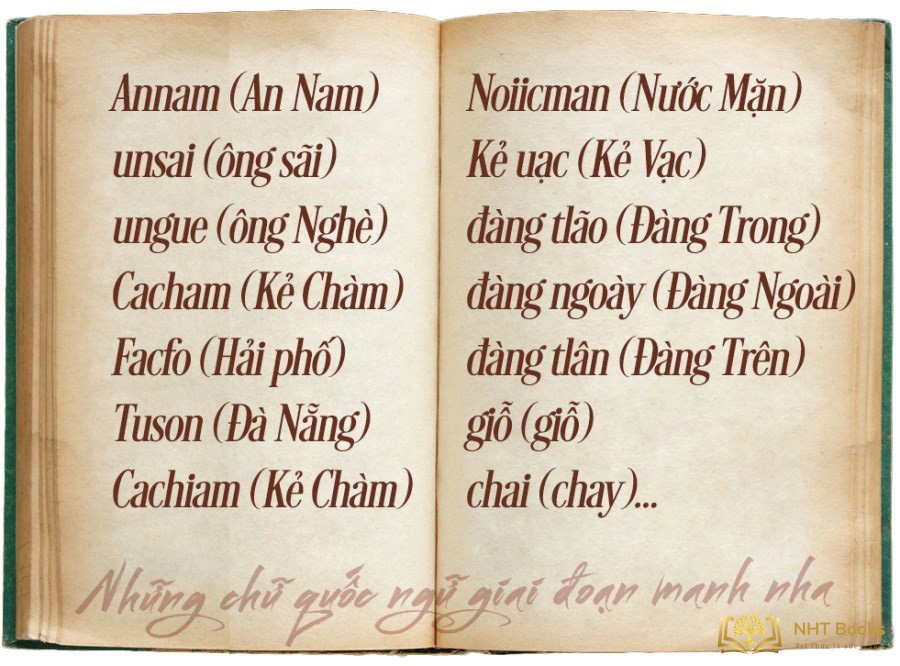 Annam (An Nam)
unsai (ông sãi)
ungue (ông Nghè)
Cacham (Kẻ Chàm)
Facfo (Hải phố)
Tuson (Đà Nẵng)
Cachiam (Kẻ Chàm)
Noiicman (Nước Mặn)
Kẻ uạc (Kẻ Vạc)
đàng tlão (Đàng Trong)
đàng ngoày (Đàng Ngoài)
đàng tlân (Đàng Trên)
giỗ (giỗ)
chai (chay)...
Những chữ quốc ngữ giai đoạn manh nha
NHT Books